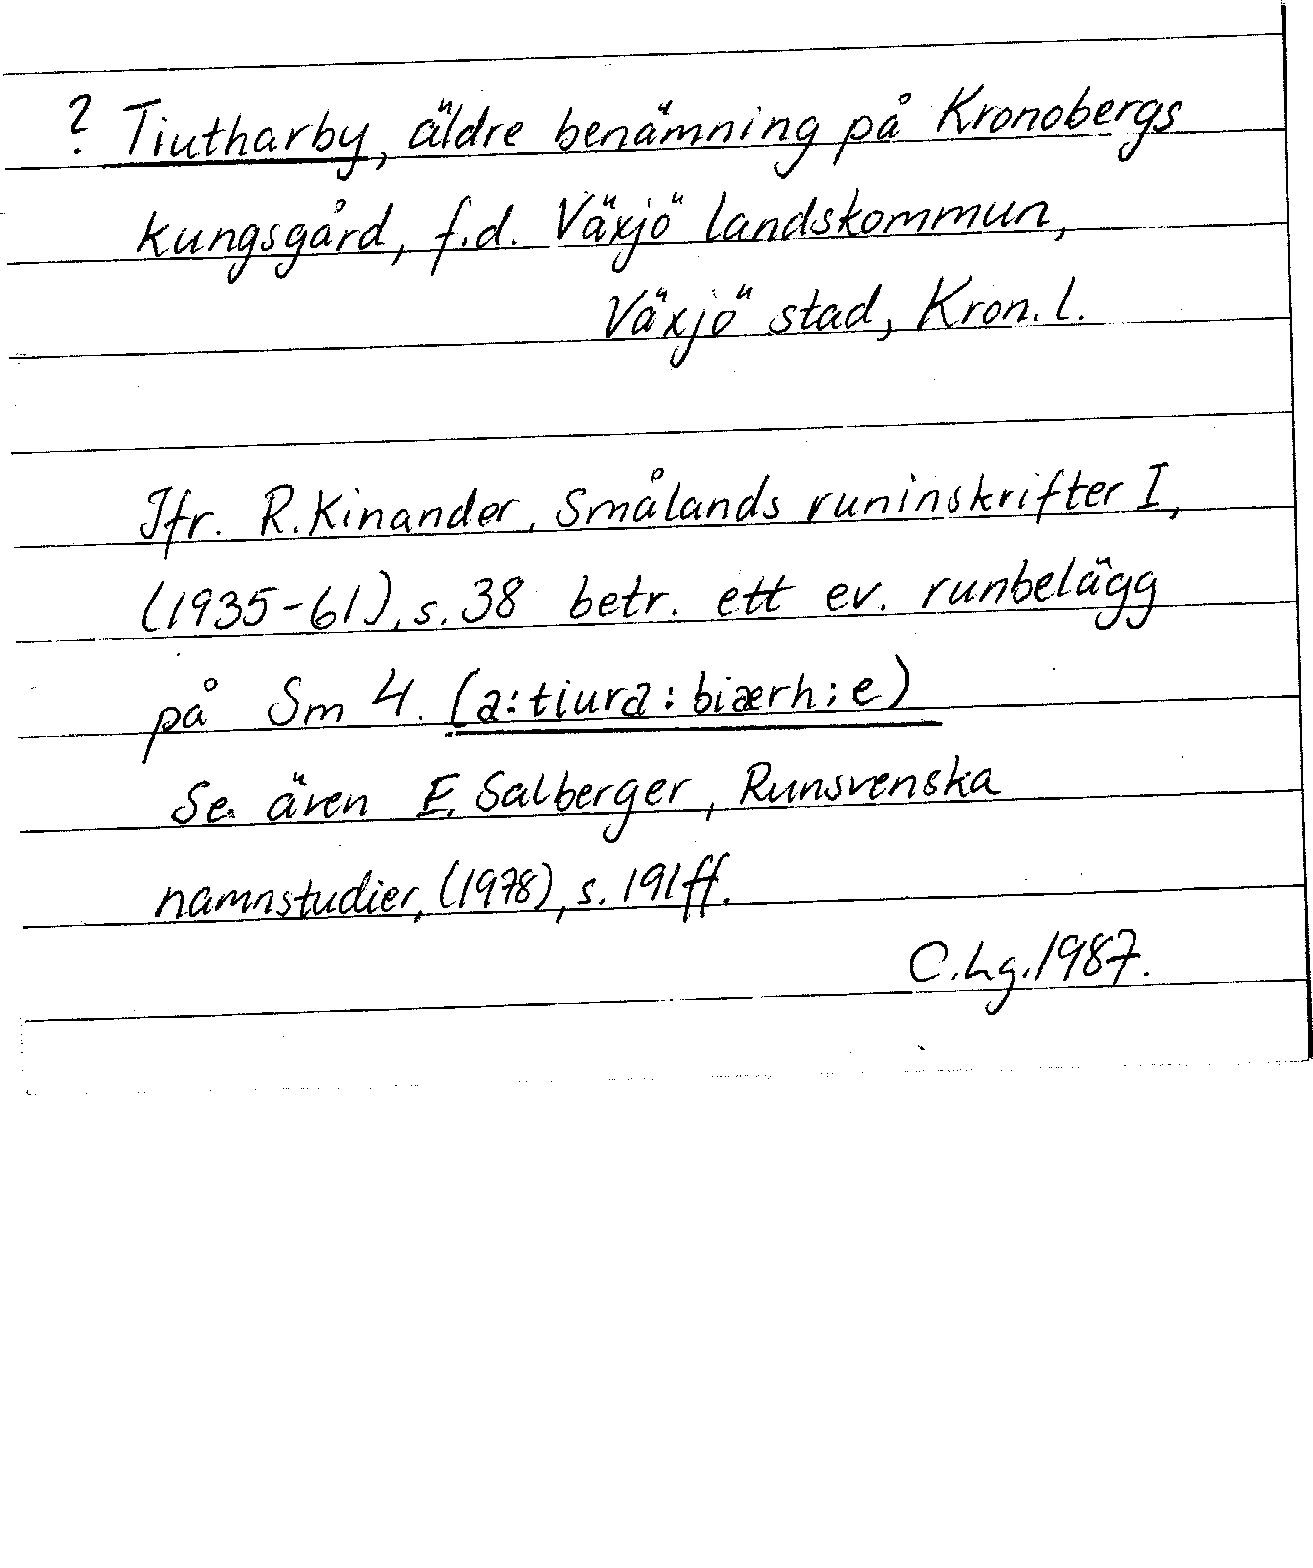 ? Tiutharby, äldre benämning på Kronobergs
kungsgård, f.d. Växjö landskommun,
Växjö stad, Kron. l.
Jfr. R. Kinander, Smålands runinskrifter I,
(1935-61), s. 38 betr. ett ev. runbelägg
på Sm 4. (a:tiura:biærh:e)
Se även E. Salberger, Runsvenska
namnstudier, (1978), s. 191 ff.
C.Lg. 1987.